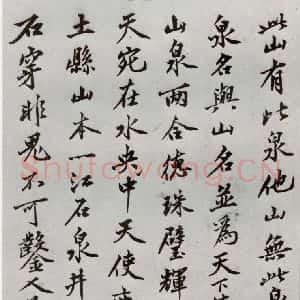 此山有此泉他山無此泉
泉名與山名並為天下
山泉兩合德珠璧輝
天宛在水央中天使
土縣山本一江石泉井
石穿非鬼不可鑿金人
Shufawang.CN